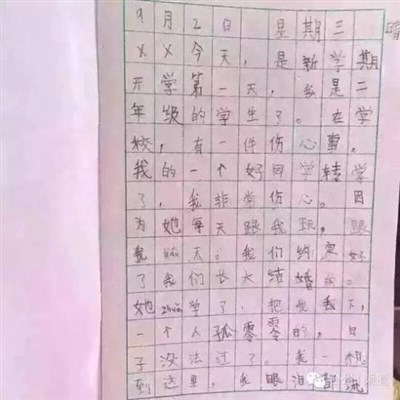 9月2日 是期三 晴
××今天，是新学期
开学第一天，我是二
年级的学生了。在学
校，有一件伤心事。
我的一个好同学转学
了，我非常伤心。因
为她每天跟我玩，跟
我聊天。我们约定好
了我们长大结婚的。
她zhuan学了，把我丢下，
一个人孤零零的，日
子没法过了。我一想
到这里，我眼泪都流